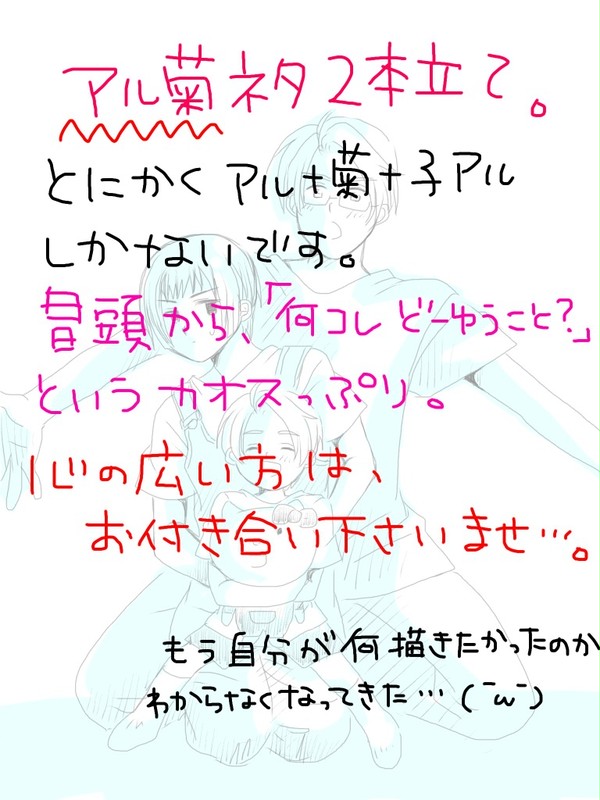 アル菊ネタ2本立て。
とにかくアル+菊+子アル
しかないです。
冒頭から、「何コレどーゆうこと?」
というカオスっぷり。
心の広い方は、
お付き合い下さいませ…。
もう自分が何描きたかったのか
わからなくなってきた…(¯ω¯)